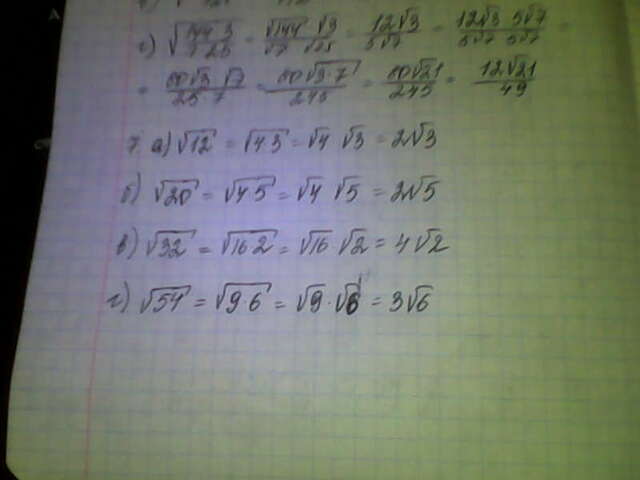 г) √(144·3 / 7·25) = √144·√3 / √7·√25 = 12√3 / 5√7 = 12√3·5√7 / 5√7·5√7 =
= 60√3·√7 / 25·7 = 60√3·7 / 245 = 60√21 / 245 = 12√21 / 49
7. а) √12 = √4·3 = √4 √3 = 2√3
б) √20 = √4·5 = √4 √5 = 2√5
в) √32 = √16·2 = √16·√2 = 4√2
г) √54 = √9·6 = √9·√6 = 3√6